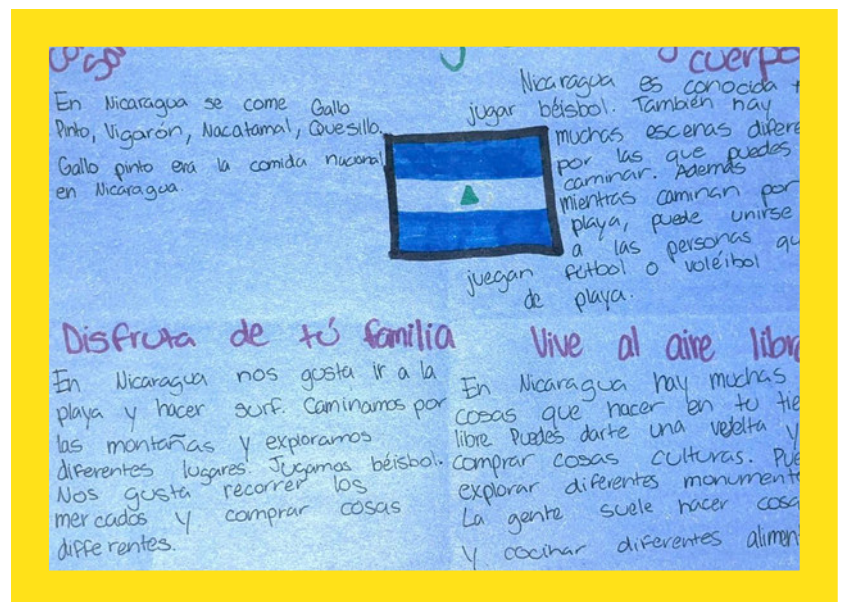 cuerpo
En Nicaragua se come Gallo
Pinto, Vigarón, Nacatamal, Quesillo.
Gallo pinto era la comida nacional
en Nicaragua.
Nicaragua es conocida
jugar béisbol. También hay
muchas escenas difere
por las que puedes
caminar. Además
mientras caminan por
playa, puede unirse
a las personas qu
juegan fútbol o voléibol
de playa.
Disfruta de tú familia
En Nicaragua nos gusta ir a la
playa y hacer surf. Caminamos por
las montañas y exploramos
diferentes lugares. Jugamos béisbol.
Nos gusta recorrer los
mercados y comprar cosas
differentes.
Vive al aire libre
En Nicaragua hay muchas
cosas que hacer en tu tie
libre Puedes darte una y
comprar cosas culturas. Pue
explorar diferentes monument
La gente suele hacer cosa
y cocinar diferentes alimen